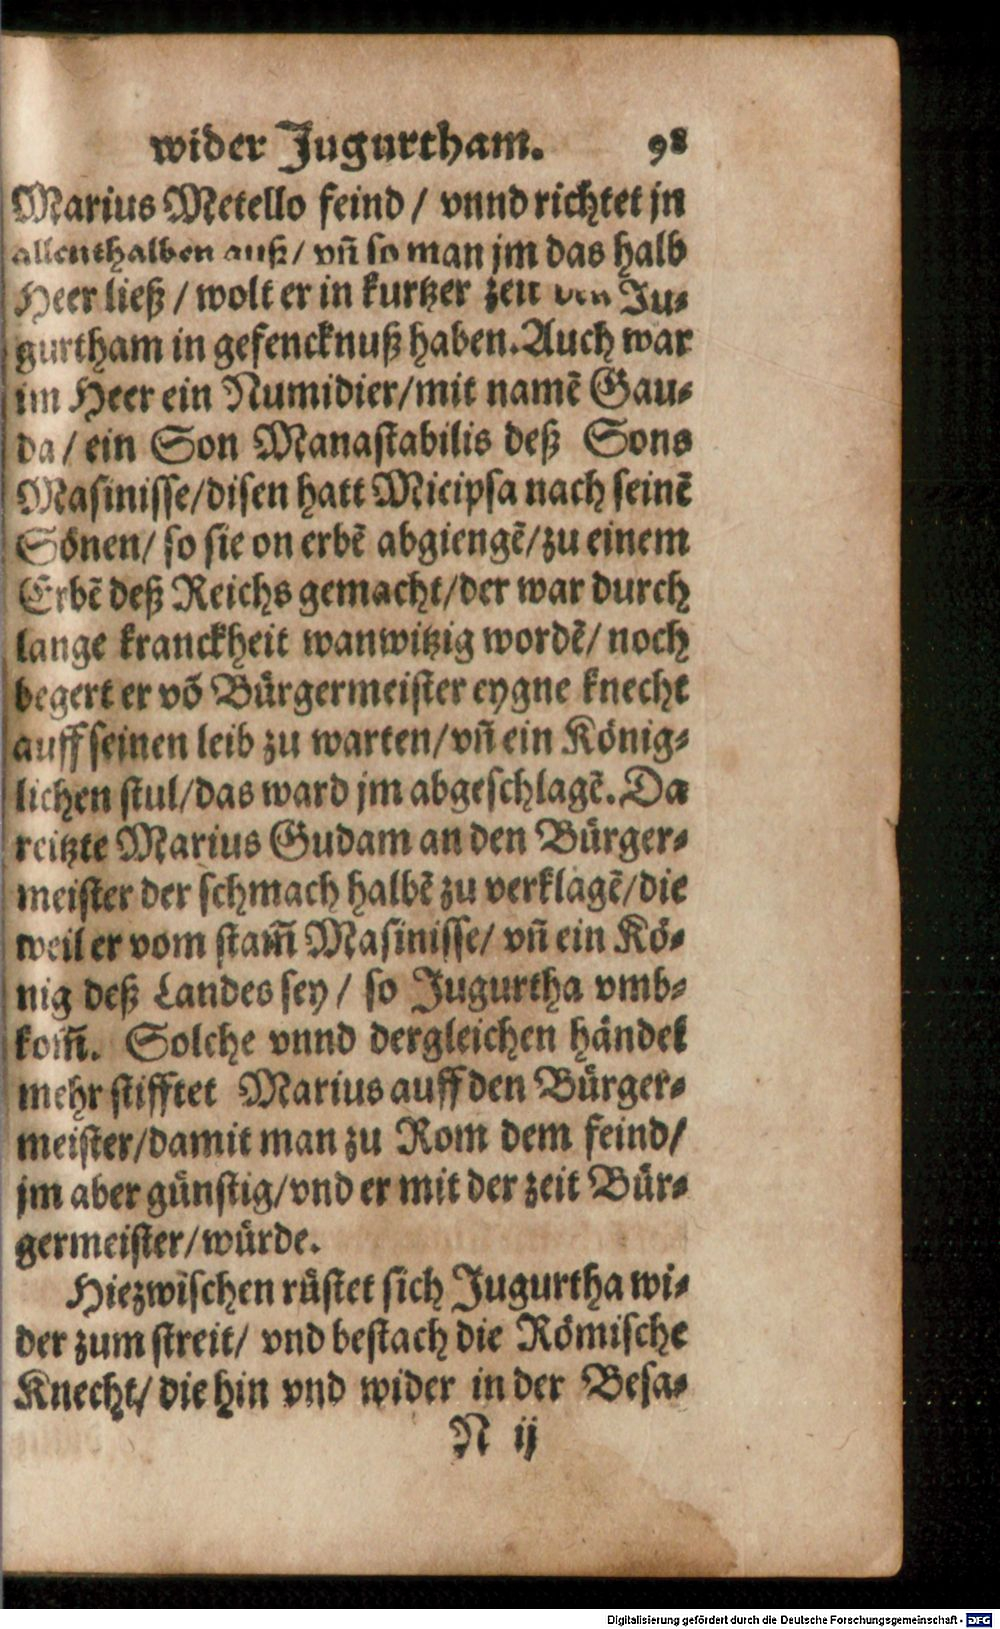 wider Jugurtham. 98
Marius Metello feind / vnnd richtet jn
allenthalben auß / vñ so man jm das halb
Heer ließ / wolt er in kurtzer zeit den Ju-
gurtham in gefencknuß haben. Auch war
im Heer ein Numidier/mit namẽ Gau-
da / ein Son Manastabilis deß Sons
Masinisse/disen hatt Micipsa nach seinẽ
Sönen/ so sie on erbẽ abgiengẽ/zu einem
Erbẽ deß Reichs gemacht/der war durch
lange kranckheit wanwitzig wordẽ/ noch
begert er võ Bürgermeister eygne knecht
auff seinen leib zu warten/vñ ein König-
lichen stul/das ward jm abgeschlagẽ. Da
reitzte Marius Gudam an den Bürger-
meister der schmach halbẽ zu verklagẽ/die
weil er vom stam̃ Masinisse/ vñ ein Kö-
nig deß Landes sey / so Jugurtha vmb-
kom̃. Solche vnnd dergleichen händel
mehr stifftet Marius auff den Bürger-
meister/damit man zu Rom dem feind/
jm aber günstig/vnd er mit der zeit Bür-
germeister/würde.
Hiezwischen rüstet sich Jugurtha wi-
der zum streit/ vnd bestach die Römische
Knecht/ die hin vnd wider in der Besa-
N ij
Digitalisierung gefördert durch die Deutsche Forschungsgemeinschaft - DFG